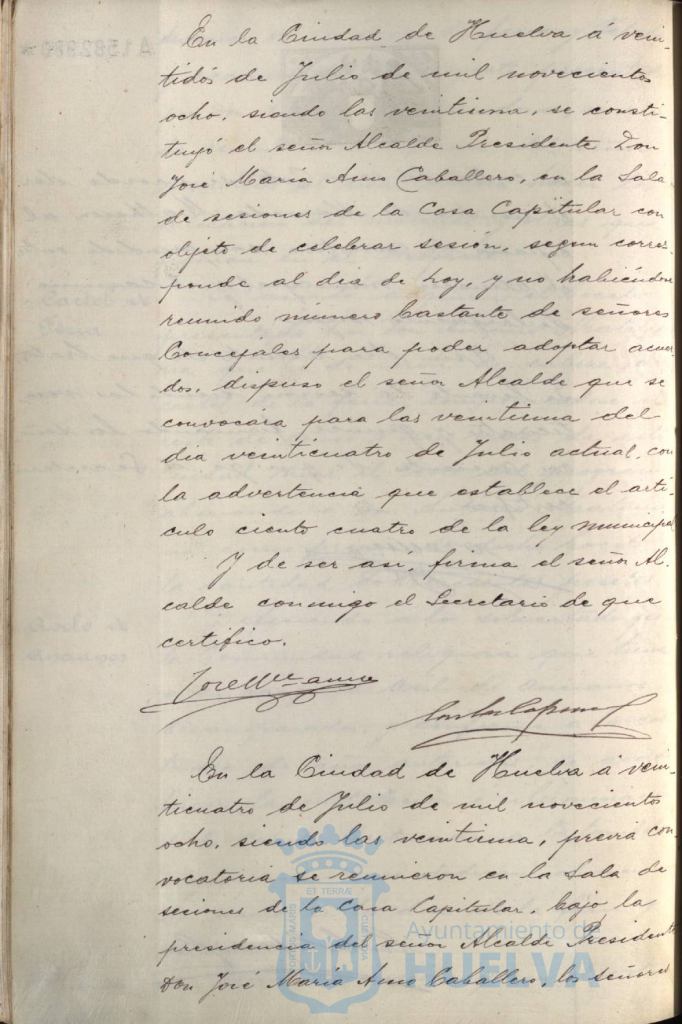 En la Ciudad de Huelva á vein-
tidós de Julio de mil novecientos
ocho, siendo las veintiuna, se consti-
tuyó el señor Alcalde Presidente Don
José María Amo Caballero, en la Sala
de sesiones de la Casa Capitular con
objeto de celebrar sesión, segun corres-
ponde al dia de hoy, y no habiéndose
reunido número bastante de señores
Concejales para poder adoptar acuer-
dos, dispuso el señor Alcalde que se
convocára para las veintiuna del
dia veinticuatro de Julio actual, con
la advertencia que establece el artí-
culo ciento cuatro de la ley municipal
Y de ser así, firma el señor Al-
calde conmigo el Secretario de que
certifico.
José Mª Amo
En la Ciudad de Huelva á vein-
ticuatro de Julio de mil novecientos
ocho, siendo las veintiuna, previa con-
vocatoria se reunieron en la Sala de
sesiones de la Casa Capitular, bajo la
presidencia del señor Alcalde Presidente
Don José María Amo Caballero, los señores
Ayuntamiento de
HUELVA